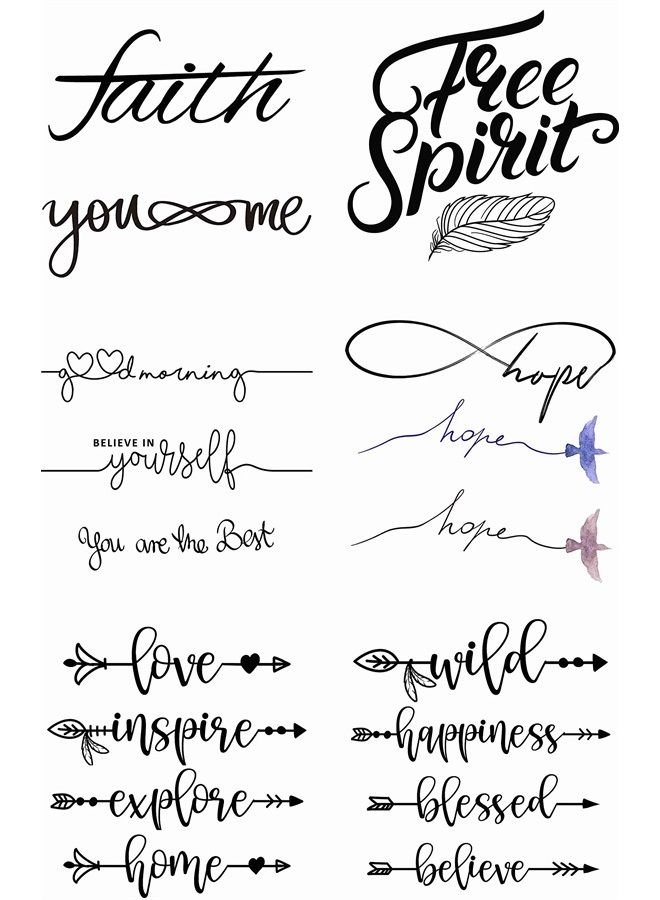 faith
Free
Spirit
you me
good morning
hope
BELIEVE IN
yourself
hope
You are the Best
hope
love
wild
inspire
happiness
explore
blessed
home
believe